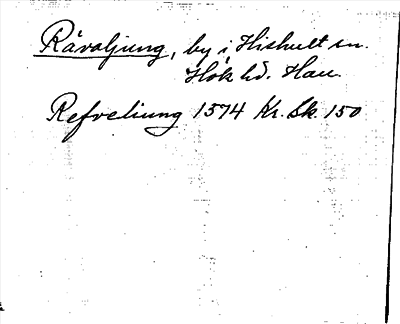 Råvaljung, by i Hishult sn.
Hök hd. Hall.
Refveliung 1574 Kr. Sk. 150